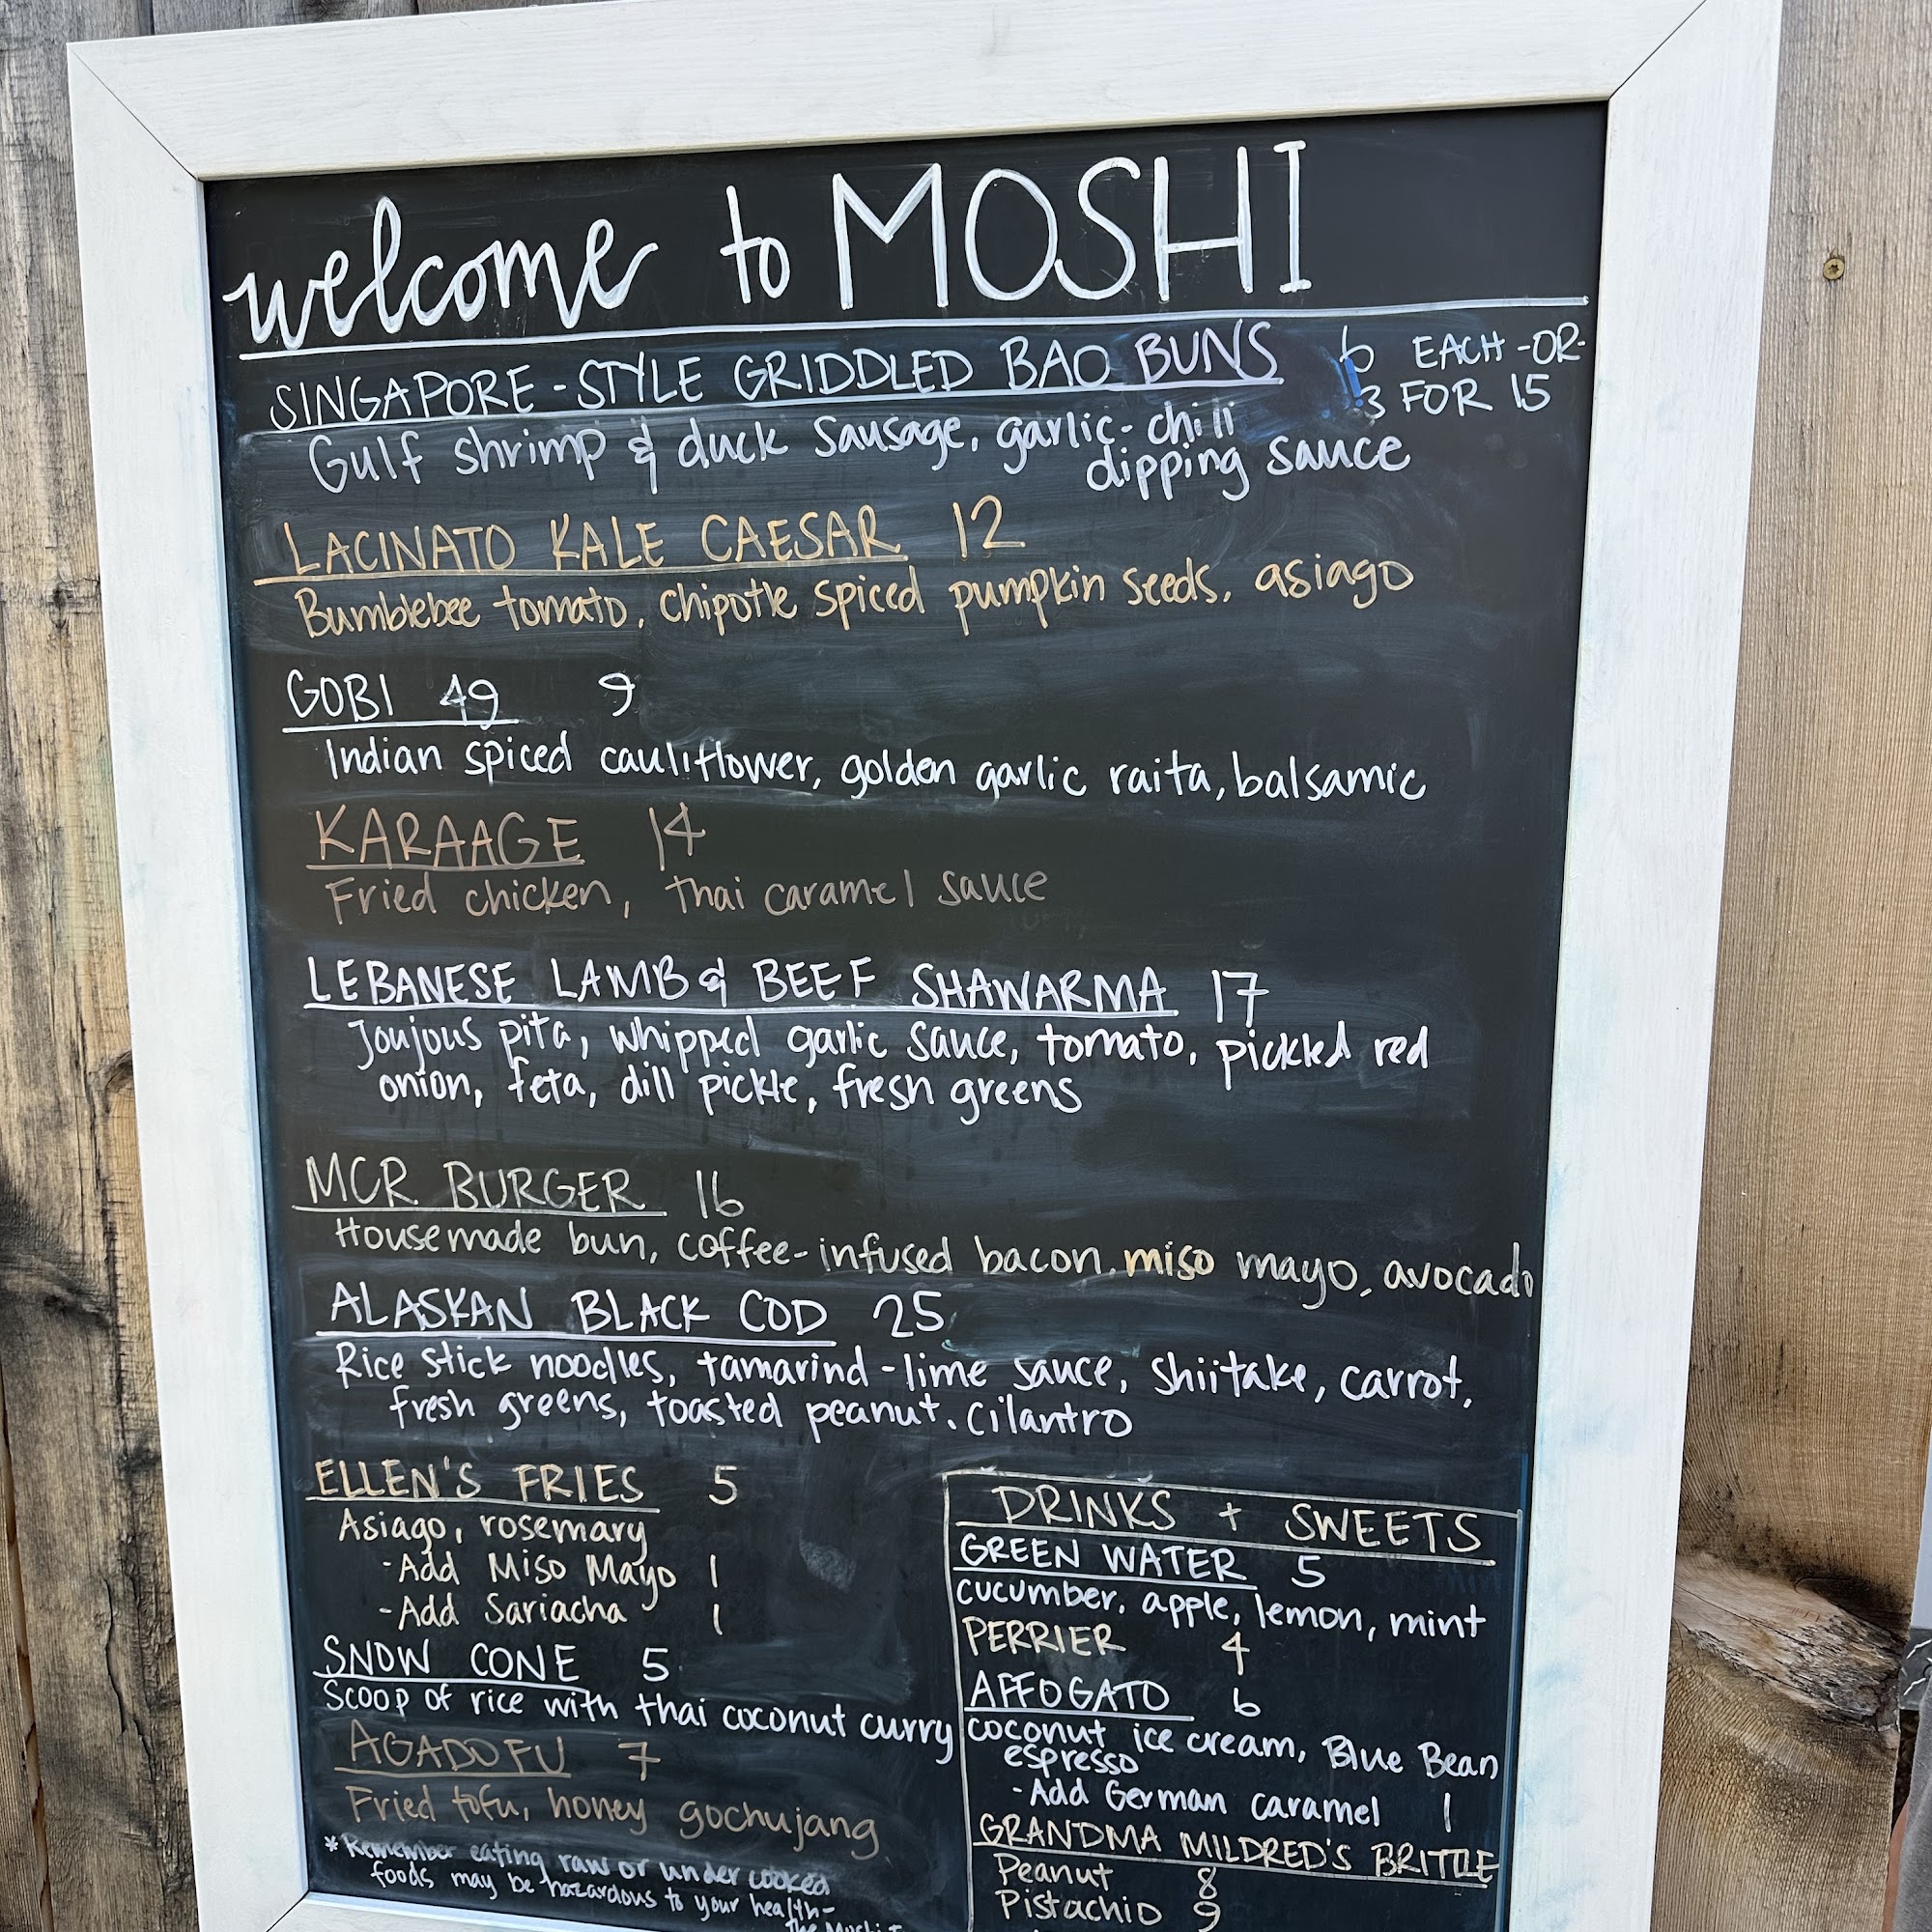 welcome to MOSHI
SINGAPORE-STYLE GRIDDLED BAO BUNS 6 EACH -OR-
3 FOR 15
Gulf shrimp & duck sausage, garlic-chili
dipping sauce
LACINATO KALE CAESAR 12
Bumblebee tomato, chipotle spiced pumpkin seeds, asiago
GOBI 49 9
Indian spiced cauliflower, golden garlic raita, balsamic
KARAAGE 14
Fried chicken, thai caramel sauce
LEBANESE LAMB & BEEF SHAWARMA 17
Joujous pita, whipped garlic sauce, tomato, pickled red
onion, feta, dill pickle, fresh greens
MCR BURGER 16
Housemade bun, coffee-infused bacon, miso mayo, avocado
ALASKAN BLACK COD 25
Rice stick noodles, tamarind-lime sauce, shiitake, carrot,
fresh greens, toasted peanut, cilantro
ELLEN'S FRIES 5
Asiago, rosemary
-Add Miso Mayo 1
-Add Sariacha 1
SNOW CONE 5
Scoop of rice with thai coconut curry
AGADOFU 7
Fried tofu, honey gochujang
*Remember eating raw or under cooked
foods may be hazardous to your health-
DRINKS + SWEETS
GREEN WATER 5
cucumber, apple, lemon, mint
PERRIER 4
AFFOGATO 6
coconut ice cream, Blue Bean
espresso
-Add German caramel 1
GRANDMA MILDRED'S BRITTLE
Peanut 8
Pistachio 9